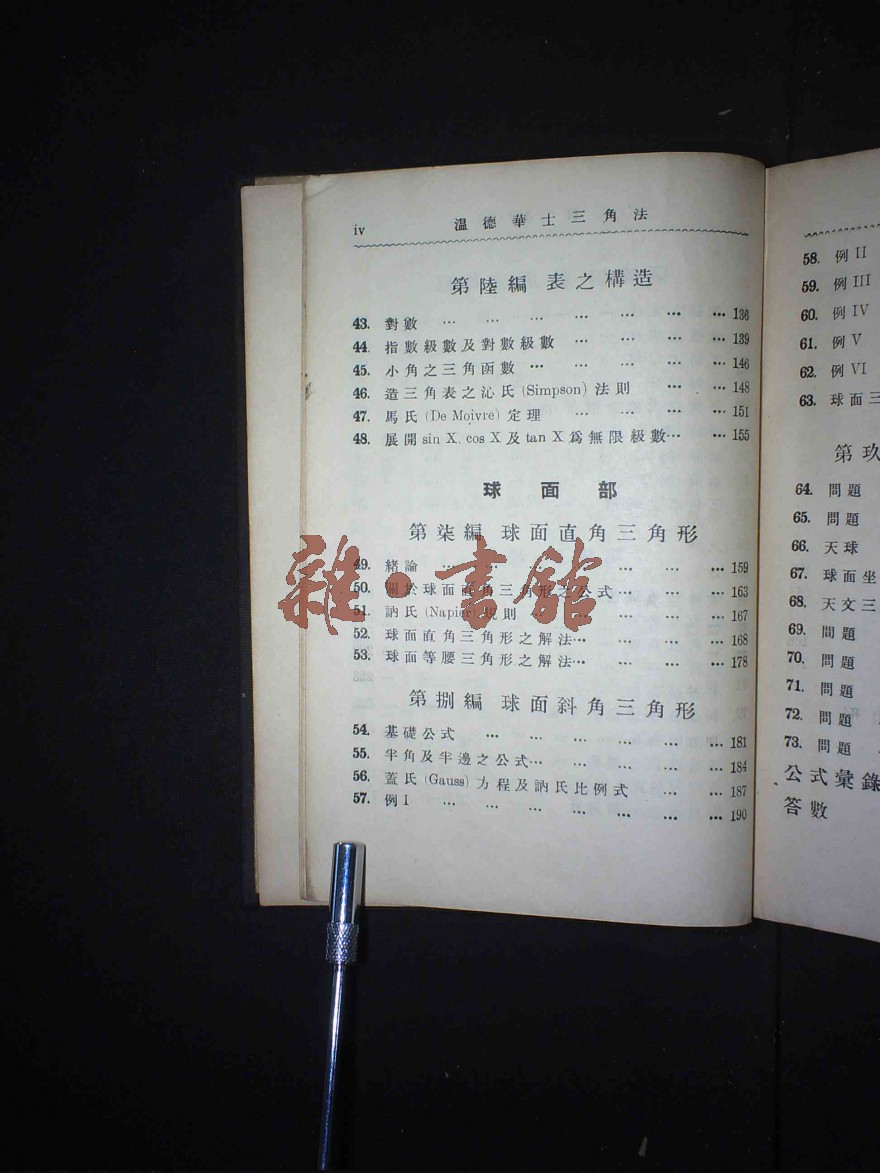 iv 溫德華士三角法
第陸編 表之構造
43. 對數 … … … … … … … 136
44. 指數級數及對數級數 … … … … 139
45. 小角之三角函數 … … … … … 146
46. 造三角表之沁氏 (Simpson) 法則 … … 148
47. 馬氏 (De Moivre) 定理 … … … … 151
48. 展開 sin X, cos X 及 tan X 爲無限級數… … 155
球面部
第柒編 球面直角三角形
49. 緒論 … … … … … … … 159
50. 關於球面直角三角形之公式… … … 163
51. 訥氏 (Napier) 規則 … … … … 167
52. 球面直角三角形之解法… … … … 168
53. 球面等腰三角形之解法… … … … 178
第捌編 球面斜角三角形
54. 基礎公式 … … … … … … 181
55. 半角及半邊之公式… … … … … 184
56. 蓋氏 (Gauss) 方程及訥氏比例式 … … 187
57. 例 I … … … … … … … 190
雜·書館
58. 例 II
59. 例 III
60. 例 IV
61. 例 V
62. 例 VI
63. 球面三
第玖
64. 問題
65. 問題
66. 天球
67. 球面坐
68. 天文三
69. 問題
70. 問題
71. 問題
72. 問題
73. 問題
公式彙錄
答數